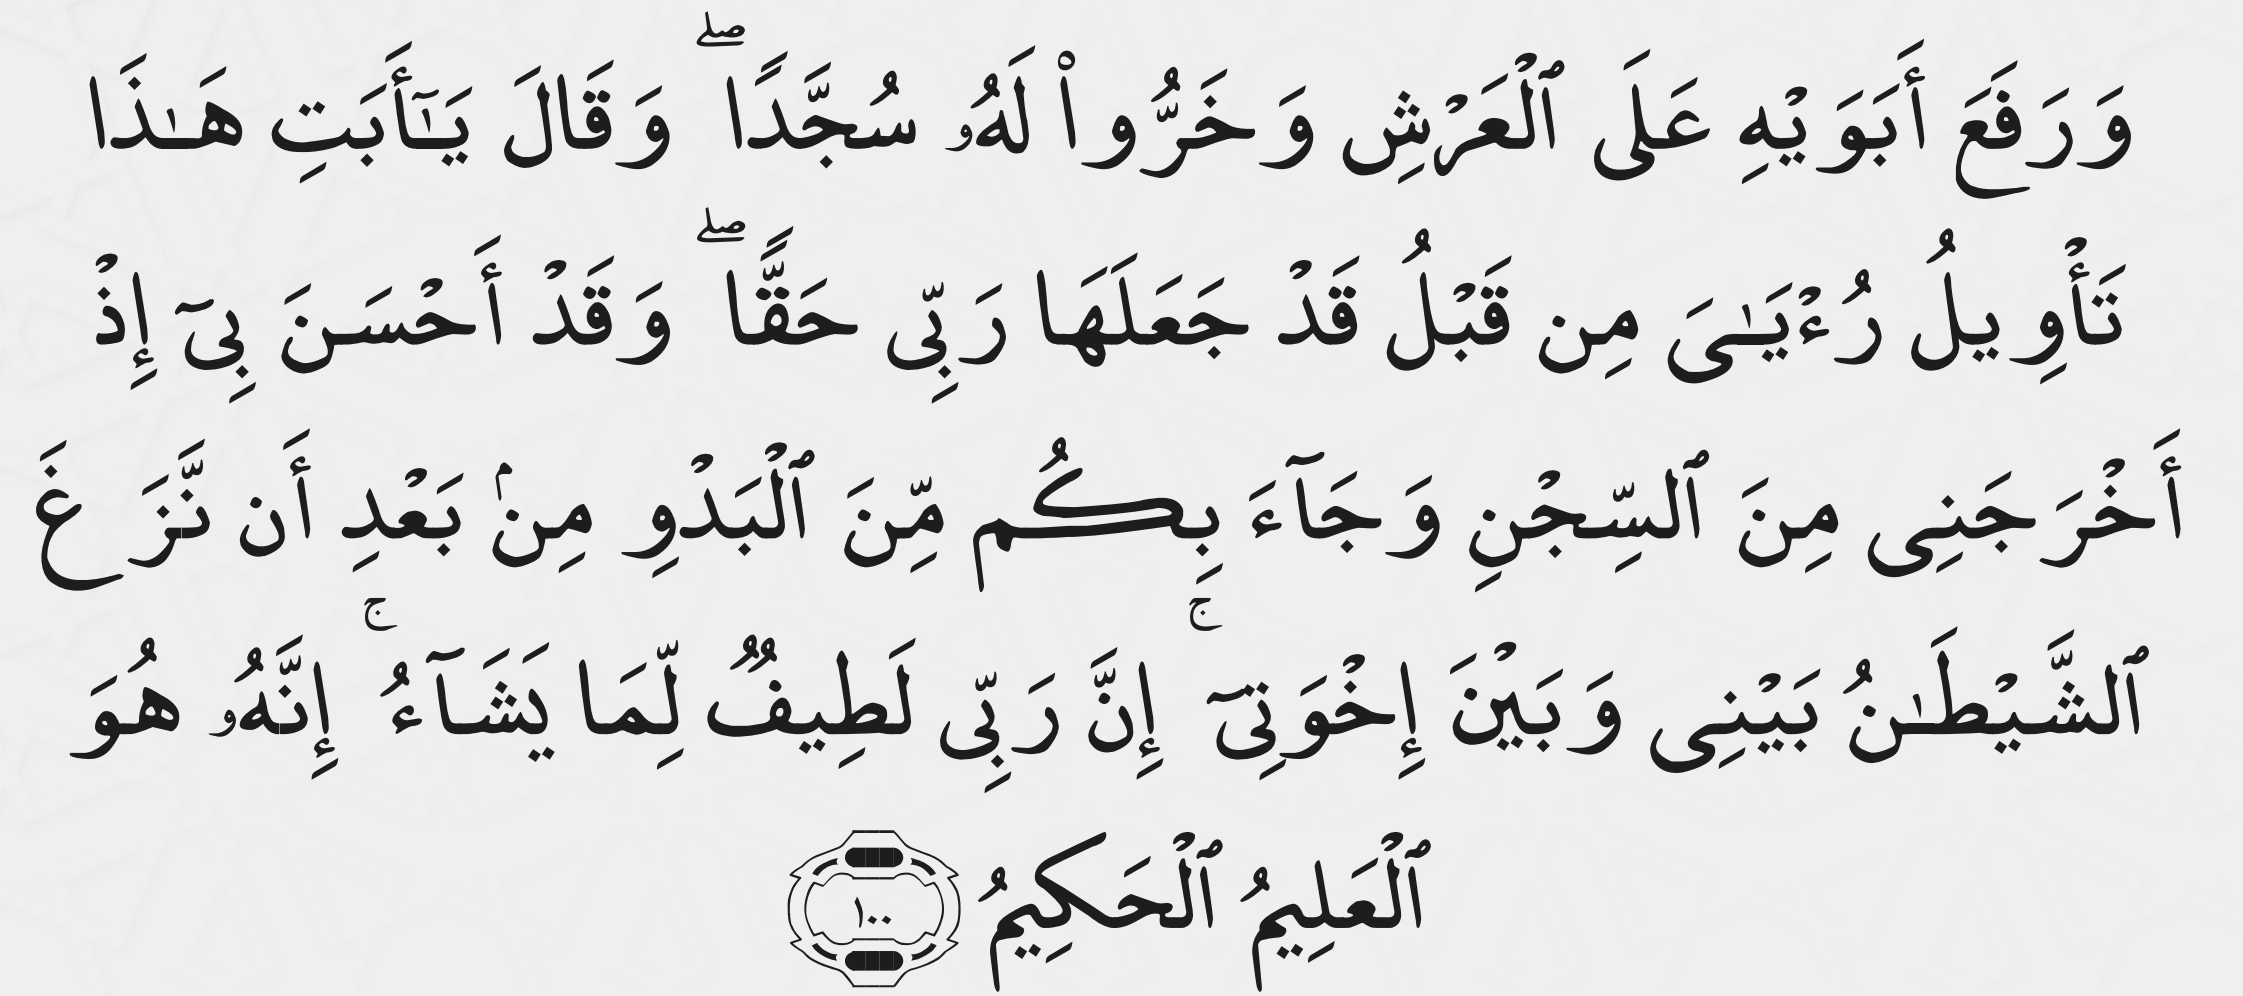 وَرَفَعَ أَبَوَيْهِ عَلَى ٱلْعَرْشِ وَخَرُّوا۟ لَهُۥ سُجَّدًا ۖ وَقَالَ يَـٰٓأَبَتِ هَـٰذَا
تَأْوِيلُ رُءْيَـٰىَ مِن قَبْلُ قَدْ جَعَلَهَا رَبِّى حَقًّا ۖ وَقَدْ أَحْسَنَ بِىٓ إِذْ
أَخْرَجَنِى مِنَ ٱلسِّجْنِ وَجَآءَ بِكُم مِّنَ ٱلْبَدْوِ مِنۢ بَعْدِ أَن نَّزَغَ
ٱلشَّيْطَـٰنُ بَيْنِى وَبَيْنَ إِخْوَتِىٓ ۚ إِنَّ رَبِّى لَطِيفٌ لِّمَا يَشَآءُ ۚ إِنَّهُۥ هُوَ
ٱلْعَلِيمُ ٱلْحَكِيمُ ١٠٠